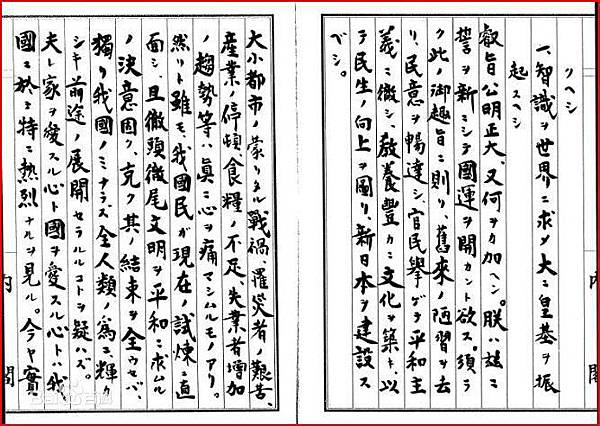 内閣
クヘシ
一、智識ヲ世界ニ求メ大ニ皇基ヲ振
起スヘシ
叡旨公明正大、又何ヲカ加ヘン。朕ハ茲ニ
誓ヲ新ニシテ國運ヲ開カント欲ス。須ラ
ク此ノ御趣旨ニ則リ、舊來ノ陋習ヲ去
リ、民意ヲ暢達シ、官民擧ゲテ平和主
義ニ徹シ、敎養豐カニ文化ヲ築キ、以
テ民生ノ向上ヲ圖リ、新日本ヲ建設ス
ベシ。
大小都市ノ蒙リタル戰禍、罹災者ノ艱苦、
産業ノ停頓、食糧ノ不足、失業者增加
ノ趨勢等ハ眞ニ心ヲ痛マシムルモノアリ。
然リト雖モ、我國民ガ現在ノ試煉ニ直
面シ、且徹頭徹尾文明ヲ平和ニ求ムル
ノ決意固ク、克ク其ノ結束ヲ全ウセバ、
獨リ我國ノミナラズ全人類ノ爲ニ、輝カ
シキ前途ノ展開セラルルコトヲ疑ハズ。
夫レ家ヲ愛スル心ト國ヲ愛スル心トハ我
國ニ於テ特ニ熱烈ナルヲ見ル。今ヤ實
内閣